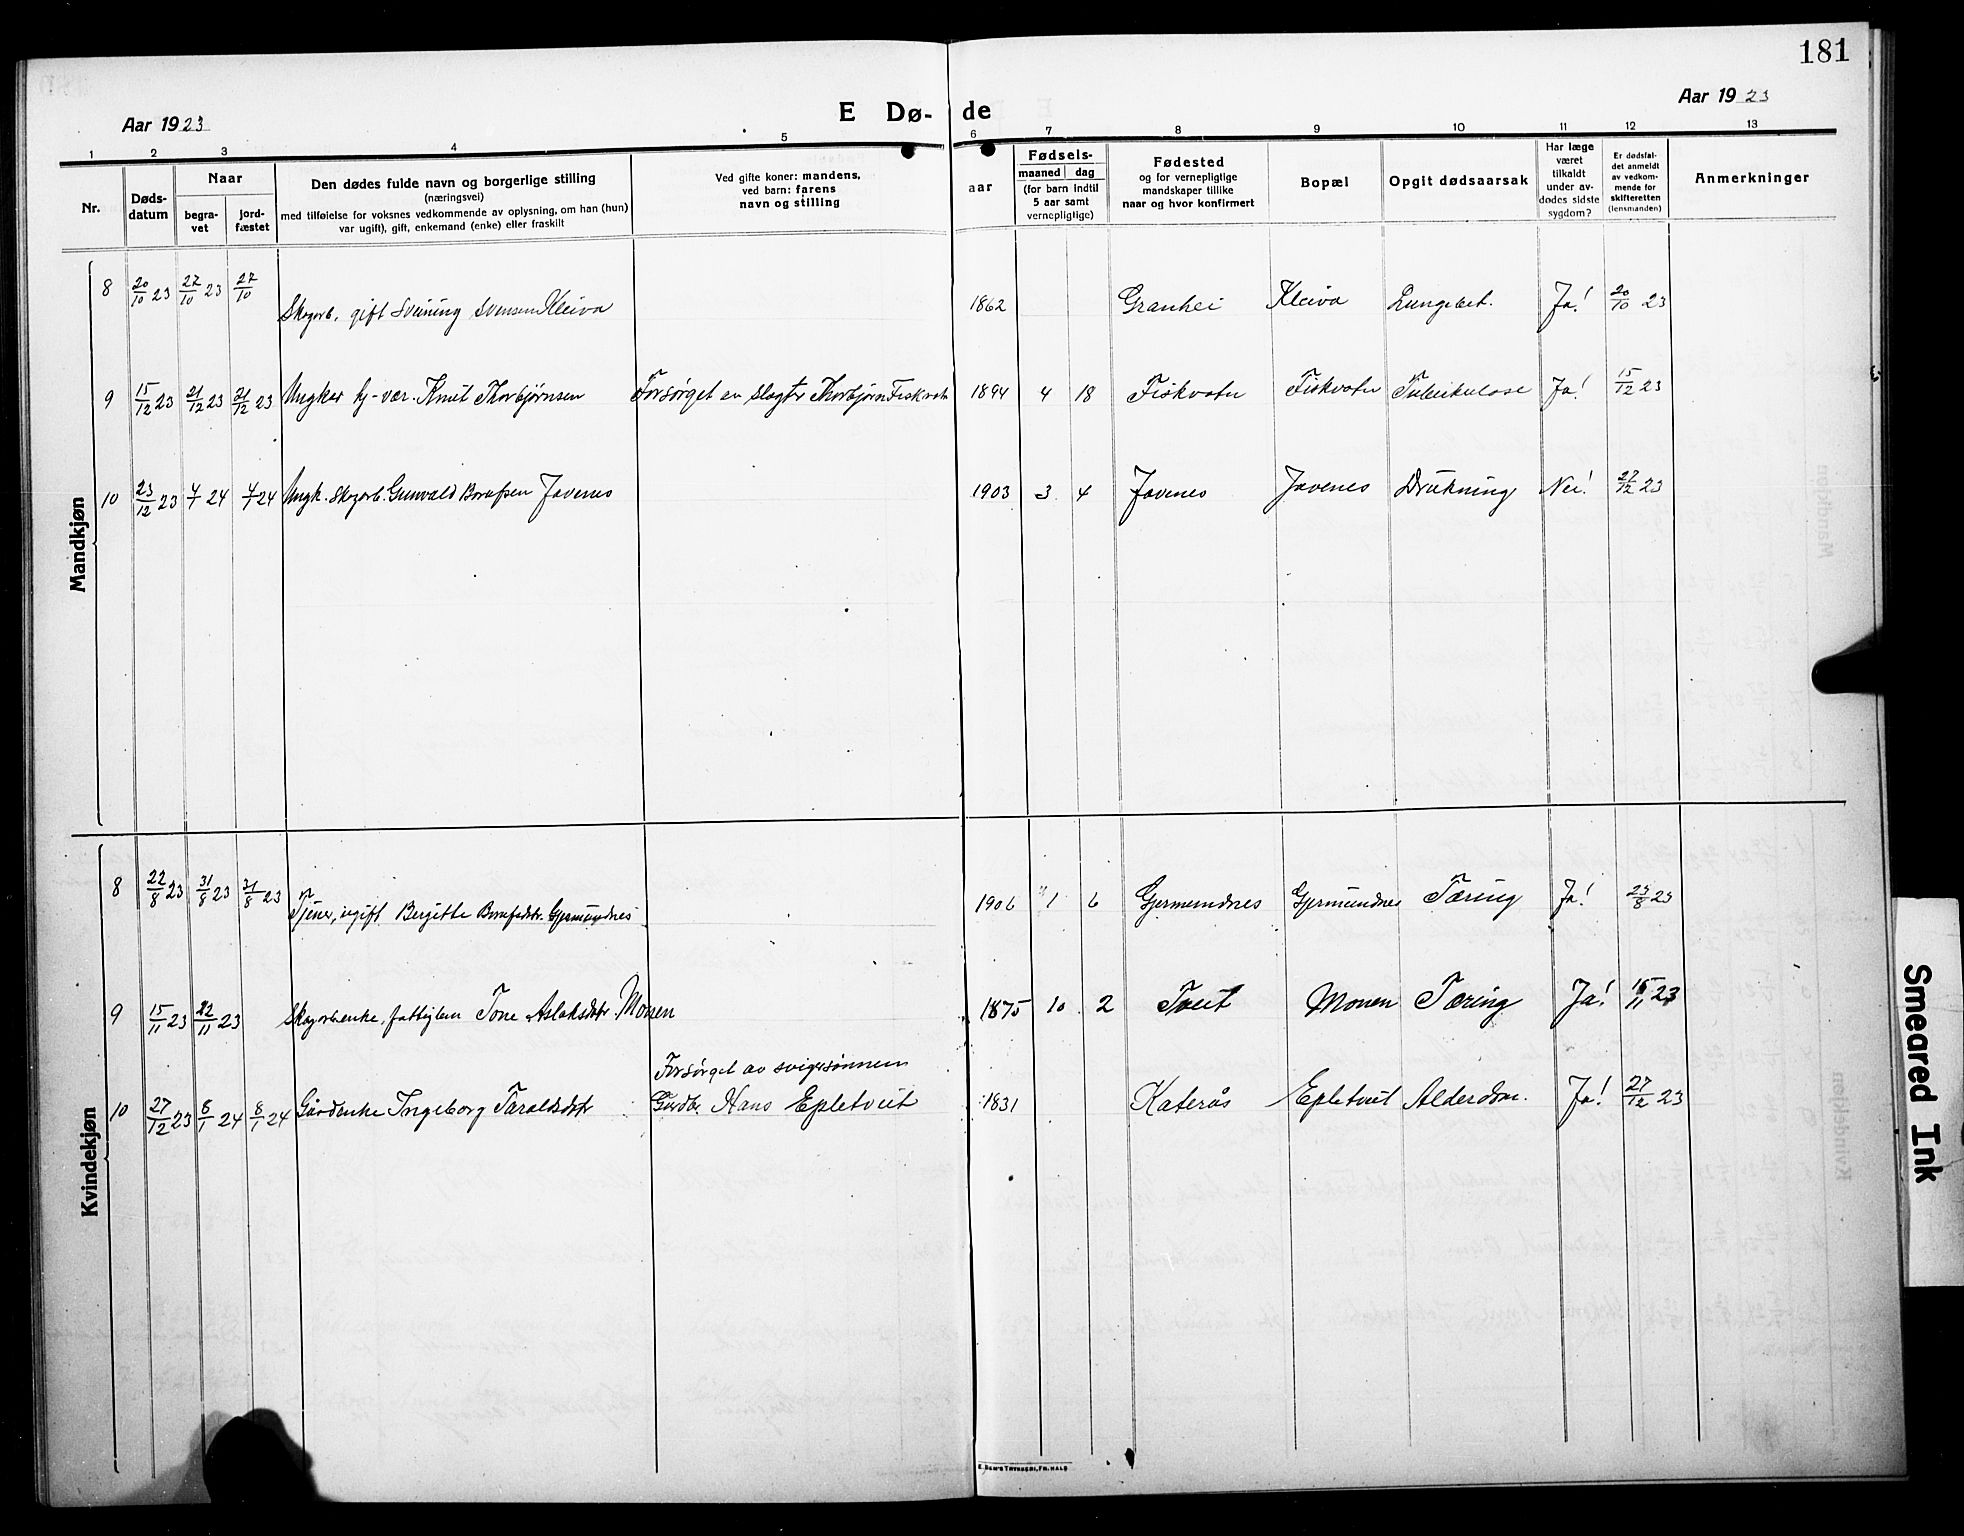 181
Aar 1923
E Dø- de
Aar 1923
1 2 3 4 5 6 7 8 9 10 11 12 13
Nr.
Døds-
datum
Naar
begra-
vet
jord-
fæstet
Den dødes fulde navn og borgerlige stilling
(næringsvei)
med tilføielse for voksnes vedkommende av oplysning, om han (hun)
var ugift), gift, enkemand (enke) eller fraskilt
Ved gifte koner: mandens,
ved barn: farens
navn og stilling
aar
Fødsels-
maaned dag
(for barn indtil
5 aar samt
vernepligtige)
Fødested
og for vernepligtige
mandskaper tillike
naar og hvor konfirmert
Bopæl
Opgit dødsaarsak
Har læge
været
tilkaldt
under av-
dødes sidste
sygdom?
Er dødsfal-
det anmeldt
av vedkom-
mende for
skifteretten
(lensmanden)
Anmerkninger
Mandkjøn
8 20/10 23 27/10 23 27/10 Skogarb. gift Sveining Svensen Kleiva 1862 Granhei Kleiva Lungebet. Ja! 20/10 23
9 15/12 23 21/12 23 21/12 23 Ungkar hj-vær. Knut Thorbjørnsen Forsørget av slagtr Thorbjørn Fiskvatn 1894 4 18 Fiskvatn Fiskvatn Tuberkulose Ja! 15/12 23
10 23/12 23 7/ 24 7/ 24 Ungk. Skogarb. Gunvald Bentsen Javenes 1903 3 4 Javenes Javenes Drukning Nei! 27/12 23
Kvindekjøn
8 22/8 23 31/8 23 31/8 23 Tjener, ugift Bergitte Gjermundnes 1906 1 6 Gjermundnes Gjermundnes Tæring Ja! 23/8 23
9 15/11 23 22/11 23 Skogarb.enke, fattiglem Tone Aslaksdtr. Monen 1875 10 2 Tveit Monen Tæring Ja! 15/11 23
Forsørget av svigersønnen
10 27/12 23 8/1 24 8/1 24 Gårdenke Ingeborg Taraldsdtr Gardbr Hans Epletveit 1831 Katerås Epletveit Alderdom. Ja! 27/12 23
E. Sem's Trykkeri, Fr.hald
Smeared Ink